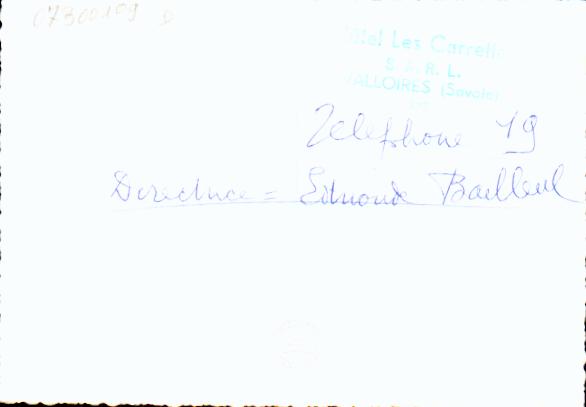 07300109 D
Hôtel Les Carrett
S.A.R.L.
VALLOIRES (Savoie)
Telephone 19
Directrice = Edmonde Bailleul